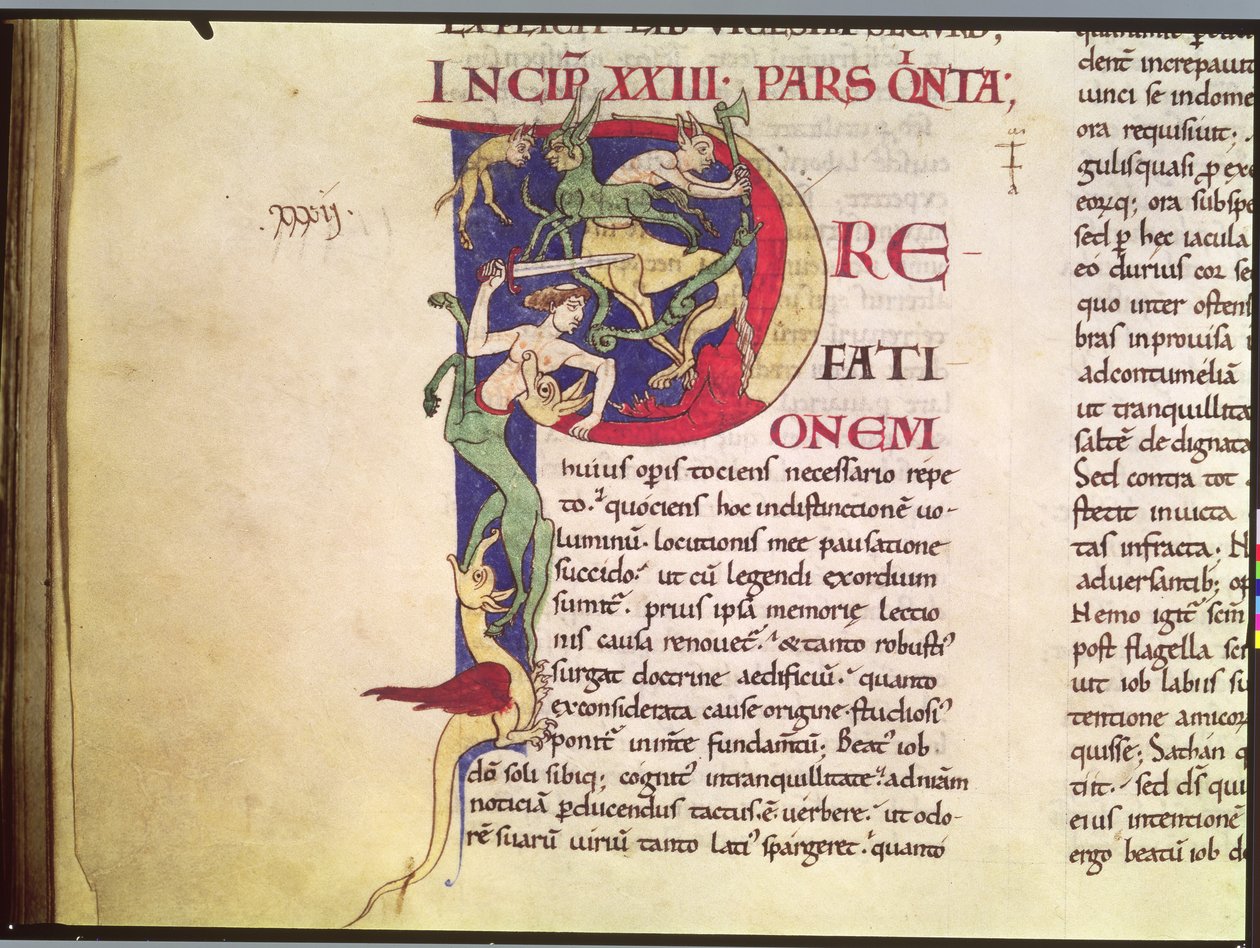 EXPLICIT LIB VIGESIM SECVND;
INCIP̄ XXIII· PARS QͥNTA;
.xxxvij.
PRE-
FATI
ONEM
huius op̄is tociens necessario repe
to. quociens hoc indistinctionē uo-
luminū· locutionis mee pausatione
succido. ut cū legendi exordium
sumit᷑. prius ipsā memorię lectio
nis causa renouet᷑. & tanto robusti᷒
surgat doctrine aedificiū. quanto
exconsiderata cause origine studiosi᷒
ponit᷑ inm̄te fundam̄tū; Beat᷒ iob
dō soli sibiq; cognit᷒ intranquillitate. adn̄rām
noticiā ꝑducendus tactus.ē. uerbere. ut odo-
rē suarū uiriū tanto lati᷒ spargeret. quanto
dent̄ increpauit
uinci se indome
ora requisiuit;
gulis quasi ꝓ exe
eoꝝq; ora subspe
sed ꝑ hec iacula
eo durius cor se
quo inter ostens
bras inprouisa
ad contumeliā
ut tranquillita
saltē dedignata
Sed contra tot
stetit inuicta
tas infracta. N
aduersantib; op
Nemo igit᷑ scm̄
post flagella scr
uit iob labiis su
tentione amicoꝝ
quisse; Sathan q
tiit. sed ds̄ qui
eius intentionē
ergo beatū iob de